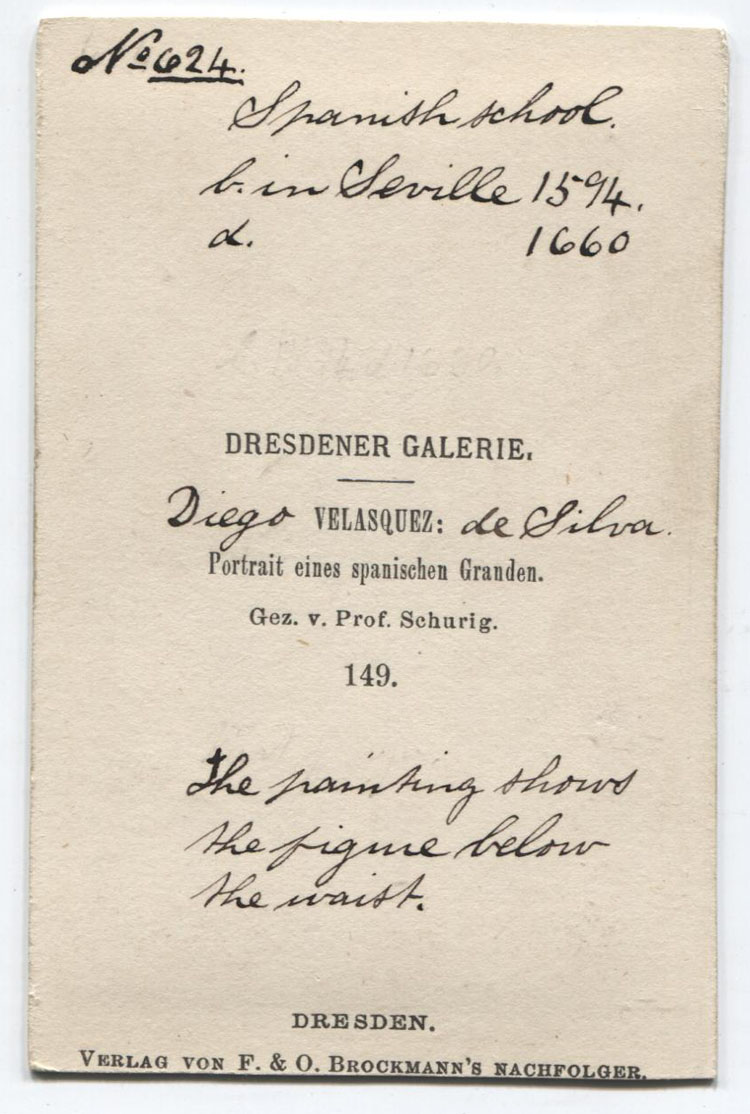 No 624.
Spanish school.
b. in Seville 1594.
d. 1660
DRESDENER GALERIE.
Diego VELASQUEZ: de Silva.
Portrait eines spanischen Granden.
Gez. v. Prof. Schurig.
149.
The painting shows
the figure below
the waist.
DRESDEN.
VERLAG VON F. & O. BROCKMANN'S NACHFOLGER.